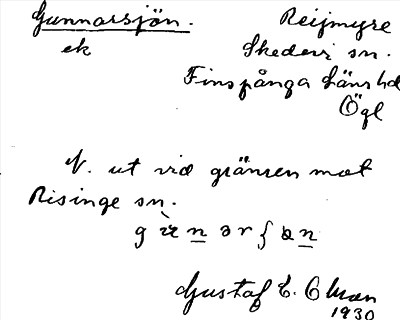 Gunnarsjön. Reijmyre
ek Skedevi sn.
Finspånga länshd
Ögl
N. ut vid gränsen mot
Risinge sn.
Gustaf E.
1930